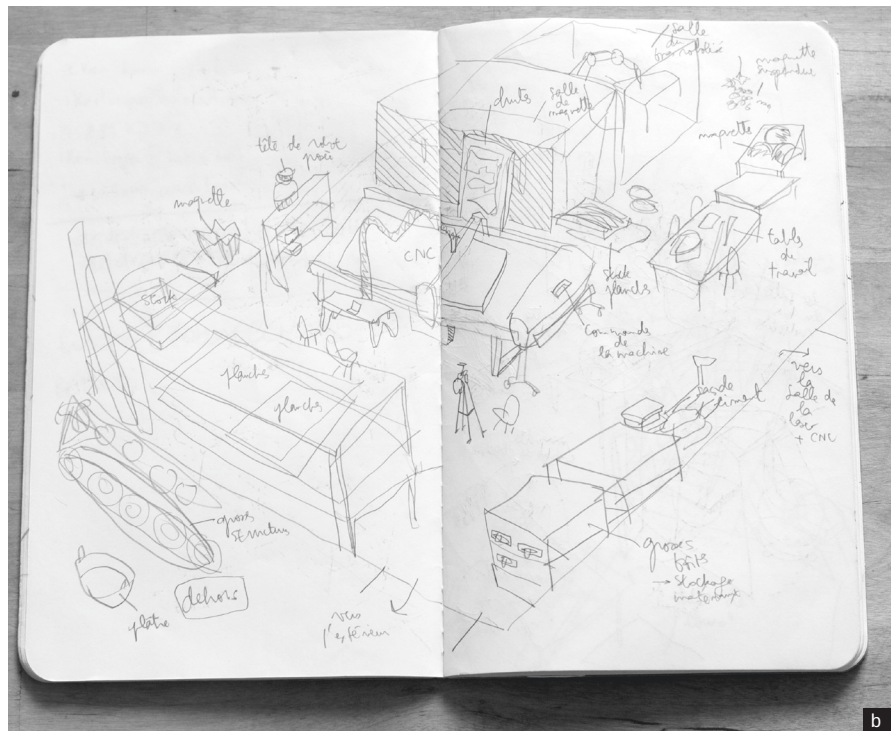 tête de robot
maquette
stock
planches
planches
grosses
structures
plâtre
dehors
vers
l'extérieur
CNC
salle
de
maquette
salle
de
maquette
suspendue
maquette
table
de
travail
stock
planches
commande
de
la machine
vers
la
salle de
la
laser
+ CNC
grosses
→ stockage
materiaux
b